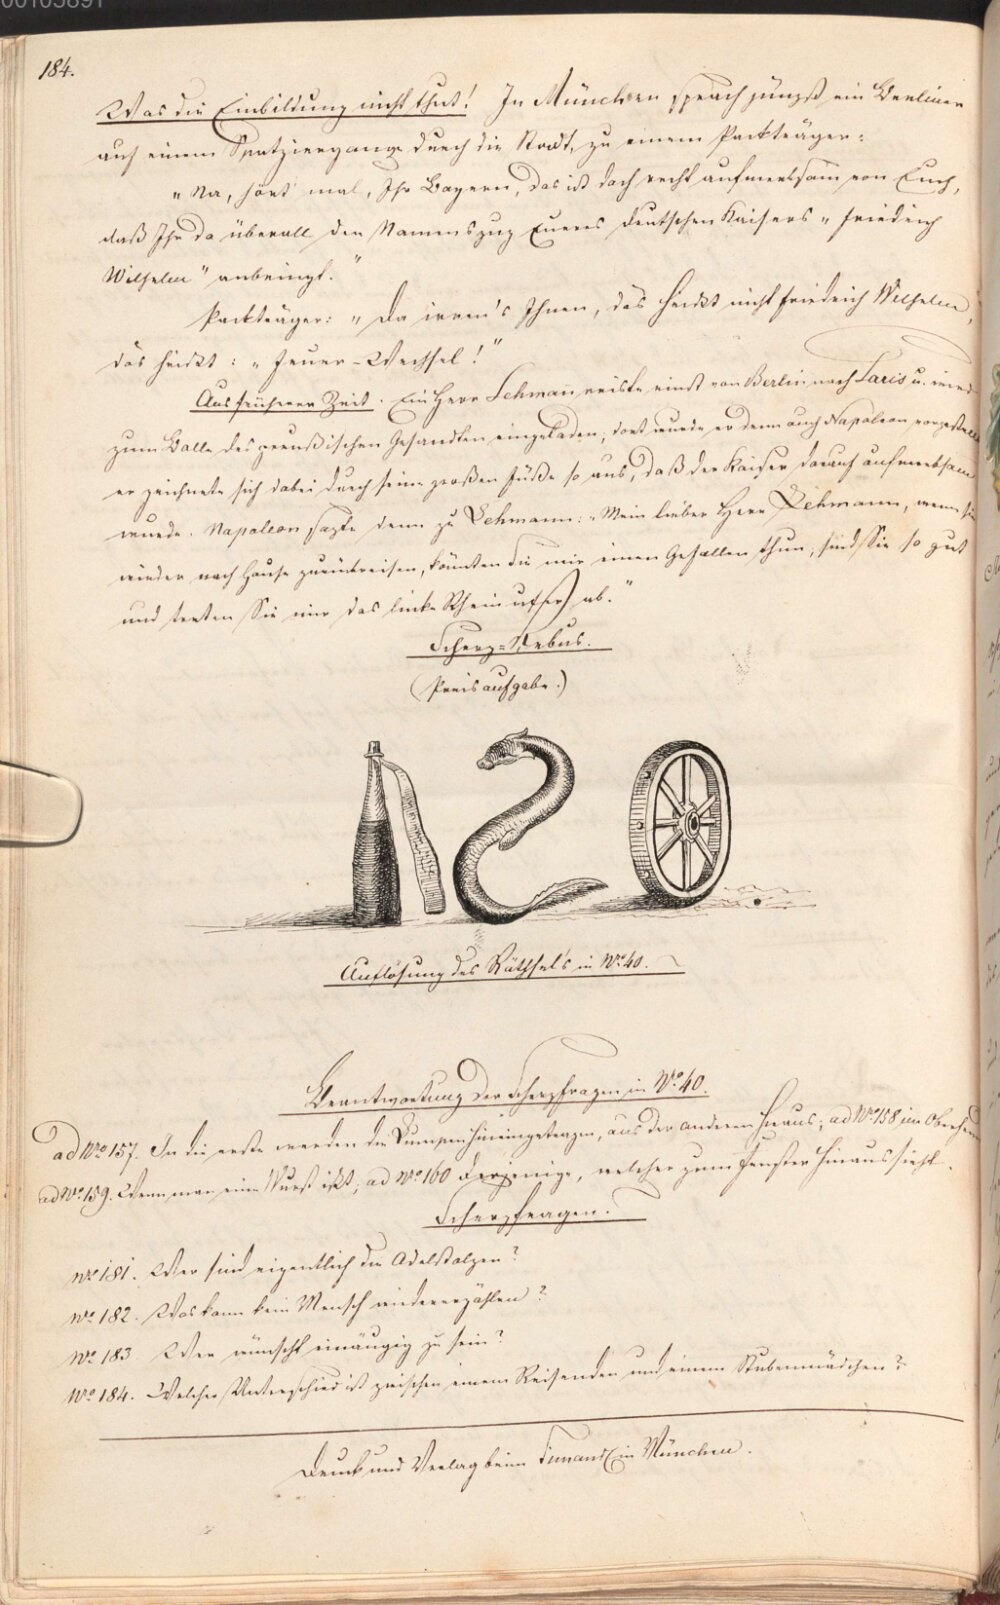 00105891
184.
Was die Einbildung nicht thut! In München sprach jüngst ein Berliner
auf einem Spatziergange durch die Stadt, zu einem Packträger:
"Na, hört mal, Ihr Bayern, das ist doch recht aufmerksam von Euch,
daß Ihr da überall den Namenszug Eueres deutschen Kaisers "Friedrich
Wilhelm" anbringt."
Packträger: "Da irren's Ihnen, das heißt nicht Friedrich Wilhelm,
das heißt: "Feuer-Wechsel!"
Aus früherer Zeit. Ein Herr Lehmann reiste einst von Berlin nach Paris u. wird
zum Balle des preußischen Gesandten eingeladen, dort wurde er denn auch Napoleon vorgestellt
er zeichnete sich dabei durch seine großen Füße so aus, daß der Kaiser darauf aufmerksam
wurde. Napoleon sagte dann zu Lehmann: "Mein lieber Herr Lehmann, wenn Sie
wieder nach Hause zurückreisen, könnten Sie mir einen Gefallen thun, sind Sie so gut
und treten Sie mir das linke Rheinufer ab."
Scherz=Rebus.
(Preisaufgabe.)
Auflösung des Räthsels in No. 40.
Beantwortung der Scherzfragen in No. 40.
ad No 157. In die erste werden die Lumpen hineingetragen, aus der anderen heraus; ad No 158 im
ad No 159. Wenn man eine Wurst ißt; ad No 160 derjenige, welcher zum Fenster hinaussieht.
Scherzfragen.
No 181. Wer sind eigentlich die Adelstolzen?
No 182. Was kann kein Mensch wiedererzählen?
No 183 Wer wünscht einäugig zu sein?
No 184. Welcher Unterschied ist zwischen einem Reisenden und einem Stubenmädchen?
Druck und Verlag beim in München.